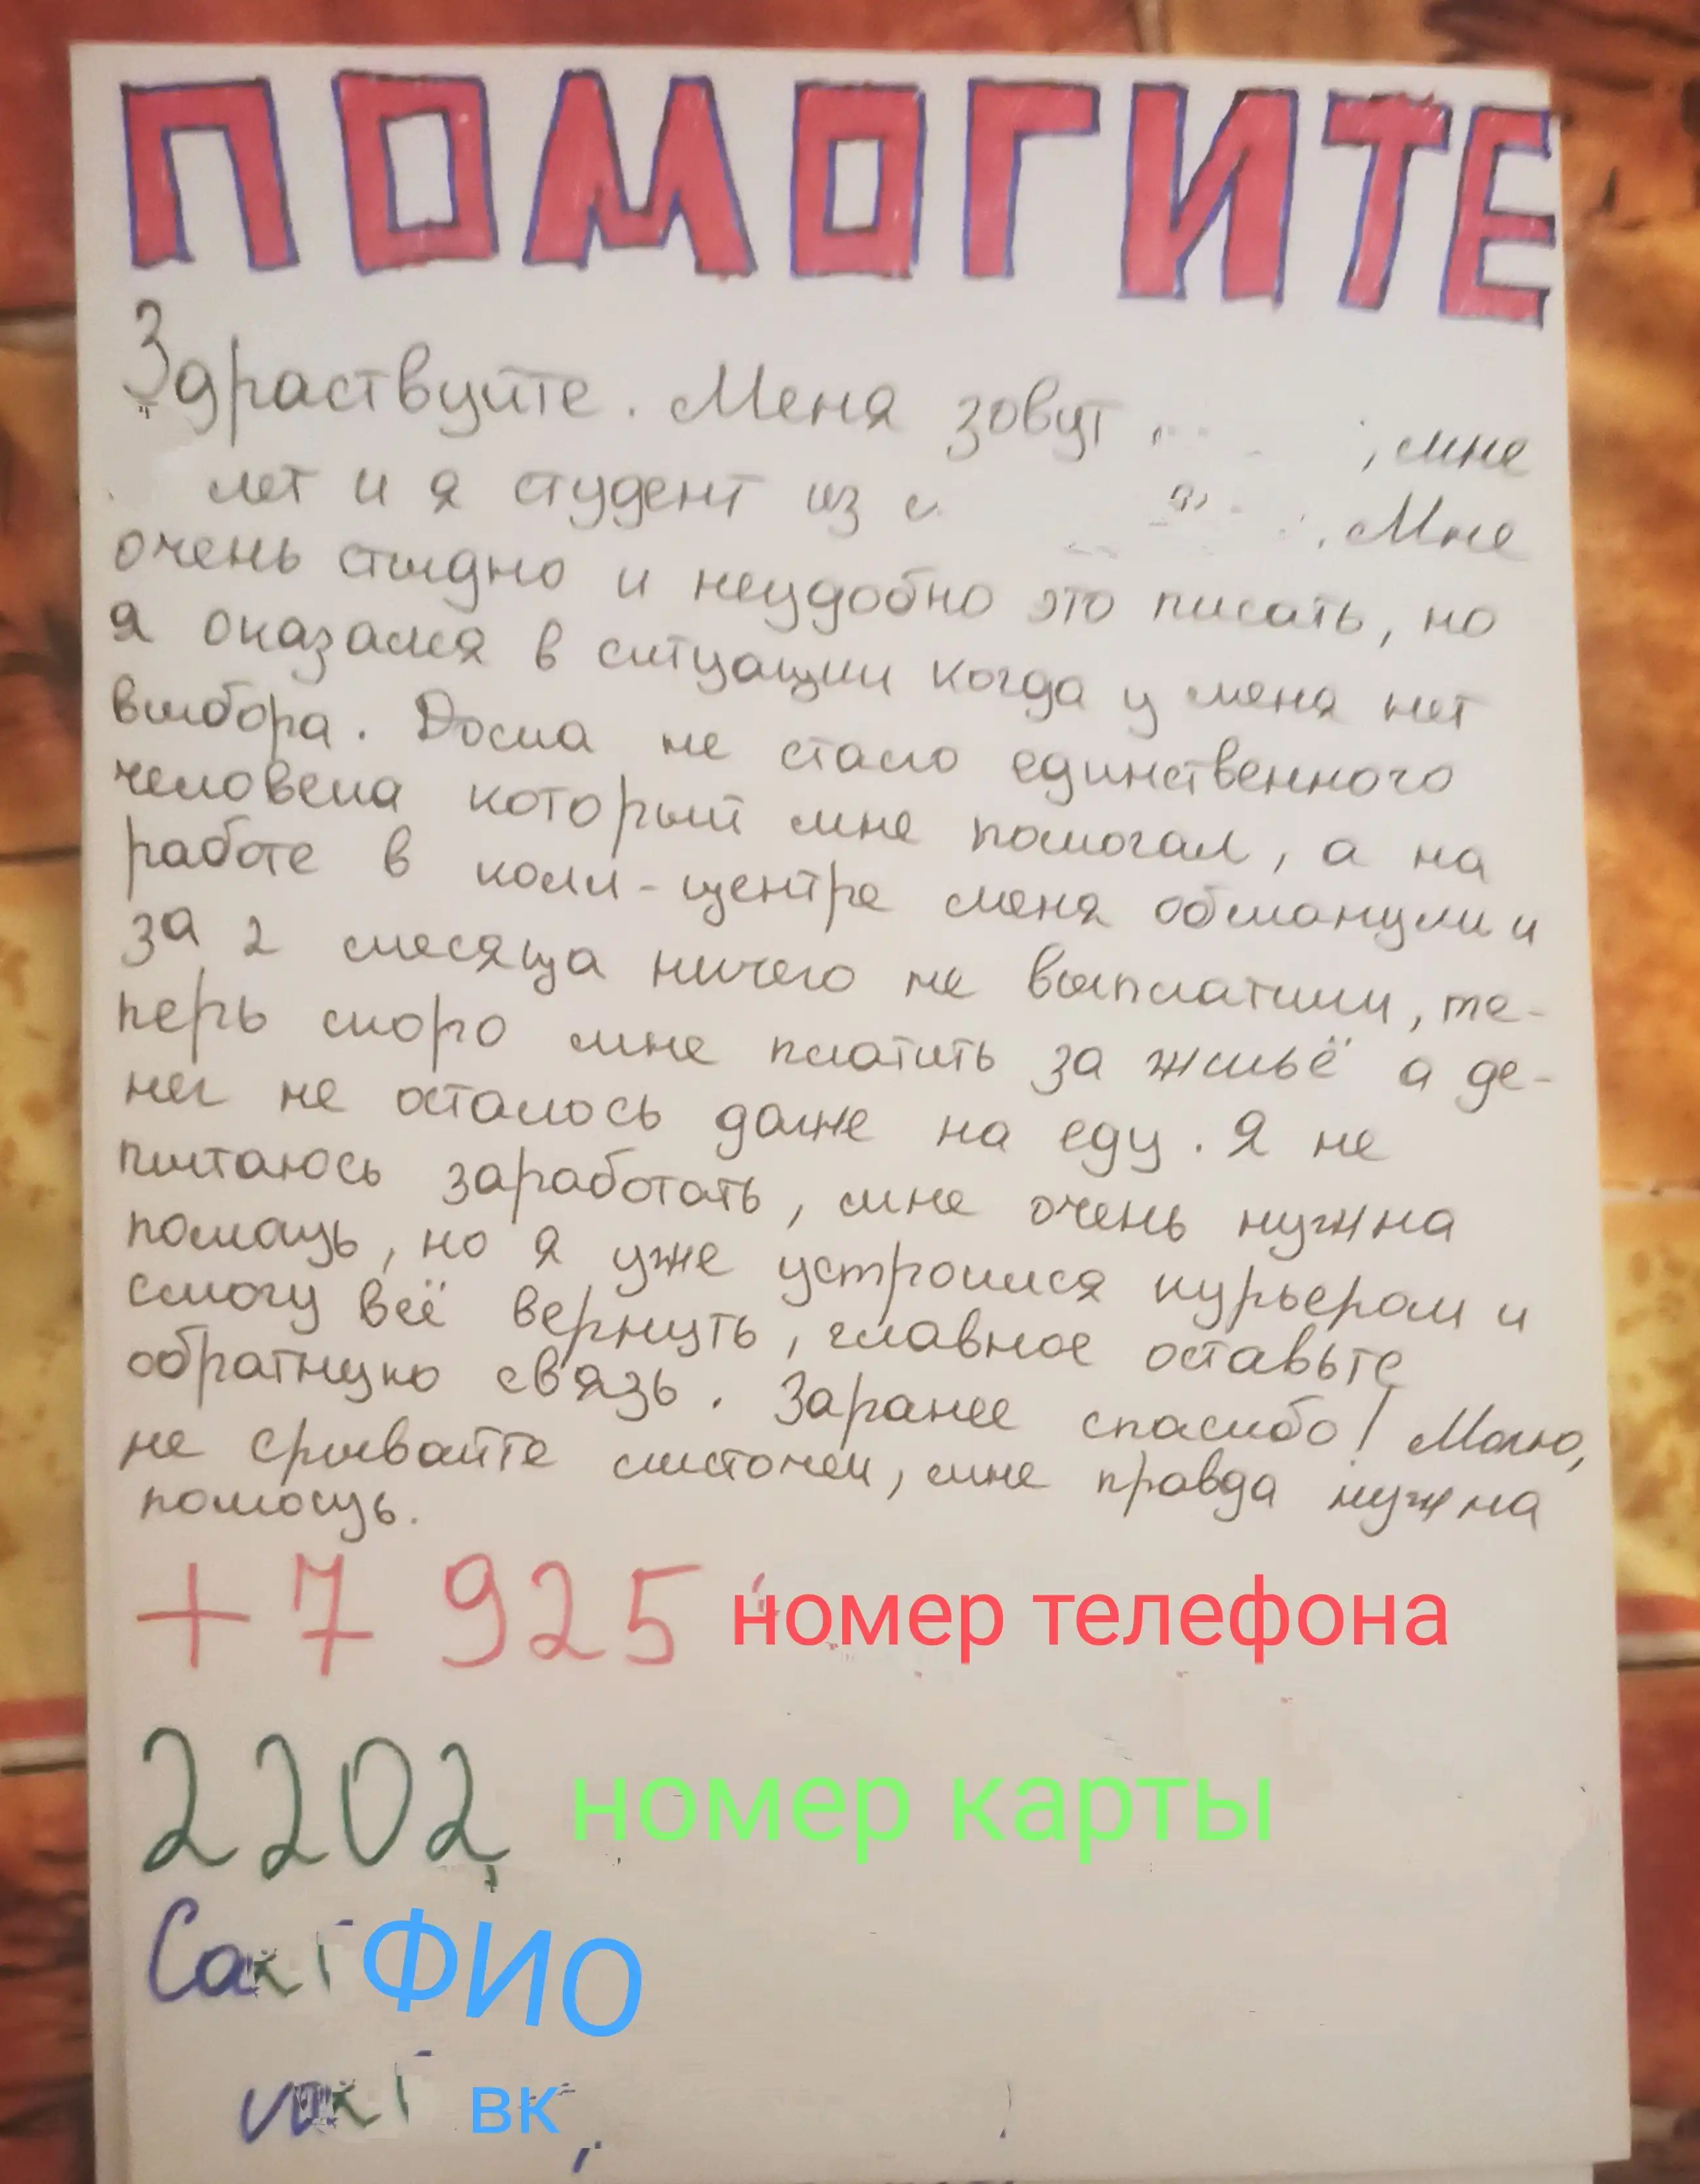 ПОМОГИТЕ
Здраствуйте. Меня зовут , мне
лет и я студент из . Мне
очень стыдно и неудобно это писать, но
я оказался в ситуации когда у меня нет
выбора. Дома не стало единственного
человека который мне помогал, а на
работе в колл-центре меня обманули и
за 2 месяца ничего не выплатили, те-
перь скоро мне платить за жильё а де-
нег не осталось даже на еду. Я не
пытаюсь заработать, мне очень нужна
помощь, но я уже устроился курьером и
смогу всё вернуть, главное оставьте
обратную связь. Заранее спасибо! Молю,
не срывайте листочек, мне правда нужна
помощь.
+7 925 номер телефона
2202 номер карты
ФИО
вк